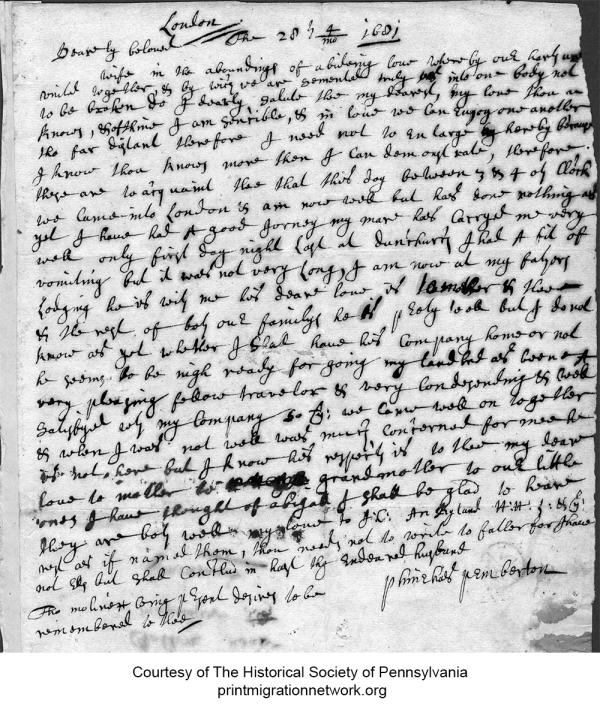 London
The 28th 4/mo 1681
Dearely beloved
wife in the aboundings of abideing love whereby our harts are
united together, & by wch we are semented truly into one body not
to be broken do I dearly salute the my dearest, my love thou
knows, & of thine I am sencible, & in love we can Enjoy one another
tho far distant therefore I need not to En large hereby Because
I know thou knows more then I can demonstrate, therefore
these are to acquaint thee that this day between 3 & 4 of Clock
we came into London & am now well but has done nothing as
yet I have had A good Jorney my mare has Carryed me very
well only first day night last at I had A fit of
vomiting but it was not very long, I am now at my fathers
Lodging he is with me his deare love is to mother & thee
& the rest of both our familys he is prety well but I do not
know as yet whether I shal have his Company home or not
he seems to be nigh ready for going my landlord has beene A
very pleasing fellow travelor & very Condesending & well
satisfyed with my Company so we came well on together
& when I was not well was much Concerned for mee he
is not here but I know his respects is to thee my deare
love to mother to grandmother to our little
ones I have thought of abigall I shall be glad to heare
they are both well my love to J:C: An Ryland H:H:
rest as if named them, thou needs not to write to father for I have
not Els but shall Conclud in hast thy Endeared husband
Phinehas Pemberton
Tho molinex being present desires to be
remembered to thee
Courtesy of The Historical Society of Pennsylvania
printmigrationnetwork.org